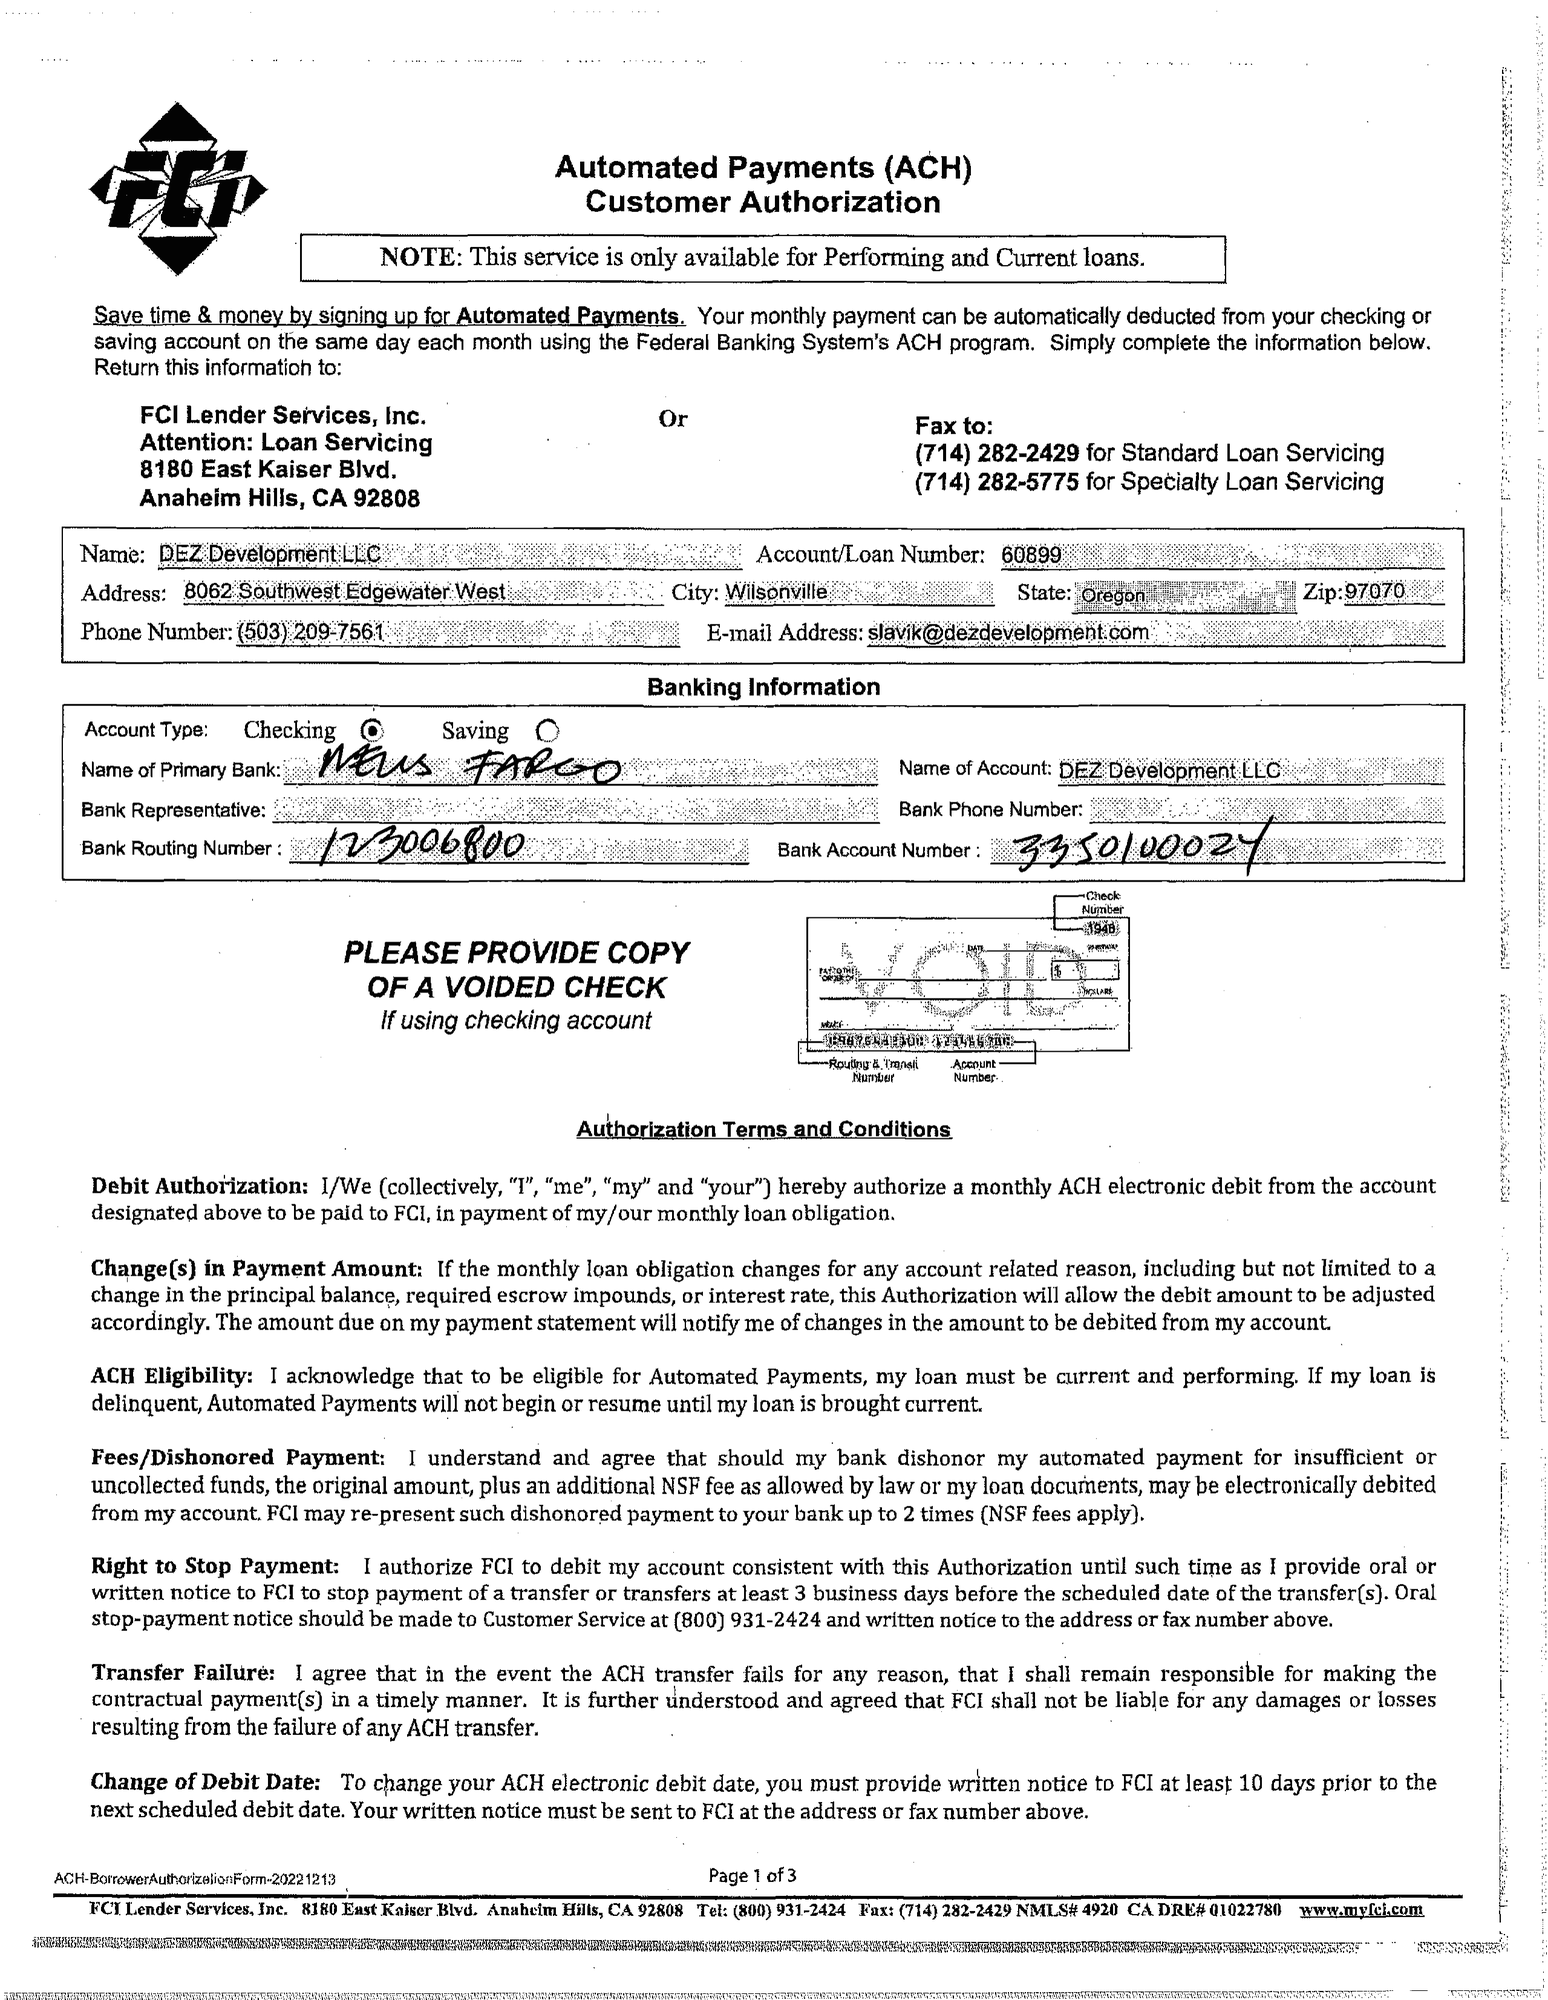 FCI
Automated Payments (ACH)
Customer Authorization
NOTE: This service is only available for Performing and Current loans.
Save time & money by signing up for Automated Payments. Your monthly payment can be automatically deducted from your checking or
saving account on the same day each month using the Federal Banking System's ACH program. Simply complete the information below.
Return this information to:
FCI Lender Services, Inc.
Attention: Loan Servicing
8180 East Kaiser Blvd.
Anaheim Hills, CA 92808
Or
Fax to:
(714) 282-2429 for Standard Loan Servicing
(714) 282-5775 for Specialty Loan Servicing
Name: DEZ Development LLC Account/Loan Number: 60899
Address: 8062 Southwest Edgewater West City: Wilsonville State: Oregon Zip: 97070
Phone Number: (503) 209-7561 E-mail Address: slavik@dezdevelopment.com
Banking Information
Account Type: Checking Saving
Name of Primary Bank: WELLS FARGO Name of Account: DEZ Development LLC
Bank Representative: Bank Phone Number:
Bank Routing Number : 123006800 Bank Account Number : 3350100024
PLEASE PROVIDE COPY
OF A VOIDED CHECK
If using checking account
Check
Number
1948
VOID
DATE
PAY TO THE
ORDER OF
$
DOLLARS
Routing & Transit
Number
Account
Number
Authorization Terms and Conditions
Debit Authorization: I/We (collectively, "I", "me", "my" and "your") hereby authorize a monthly ACH electronic debit from the account
designated above to be paid to FCI, in payment of my/our monthly loan obligation.
Change(s) in Payment Amount: If the monthly loan obligation changes for any account related reason, including but not limited to a
change in the principal balance, required escrow impounds, or interest rate, this Authorization will allow the debit amount to be adjusted
accordingly. The amount due on my payment statement will notify me of changes in the amount to be debited from my account.
ACH Eligibility: I acknowledge that to be eligible for Automated Payments, my loan must be current and performing. If my loan is
delinquent, Automated Payments will not begin or resume until my loan is brought current.
Fees/Dishonored Payment: I understand and agree that should my bank dishonor my automated payment for insufficient or
uncollected funds, the original amount, plus an additional NSF fee as allowed by law or my loan documents, may be electronically debited
from my account. FCI may re-present such dishonored payment to your bank up to 2 times (NSF fees apply).
Right to Stop Payment: I authorize FCI to debit my account consistent with this Authorization until such time as I provide oral or
written notice to FCI to stop payment of a transfer or transfers at least 3 business days before the scheduled date of the transfer(s). Oral
stop-payment notice should be made to Customer Service at (800) 931-2424 and written notice to the address or fax number above.
Transfer Failure: I agree that in the event the ACH transfer fails for any reason, that I shall remain responsible for making the
contractual payment(s) in a timely manner. It is further understood and agreed that FCI shall not be liable for any damages or losses
resulting from the failure of any ACH transfer.
Change of Debit Date: To change your ACH electronic debit date, you must provide written notice to FCI at least 10 days prior to the
next scheduled debit date. Your written notice must be sent to FCI at the address or fax number above.
ACH-BorrowerAuthorizationForm-20221213
Page 1 of 3
FCI Lender Services, Inc. 8180 East Kaiser Blvd. Anaheim Hills, CA 92808 Tel: (800) 931-2424 Fax: (714) 282-2429 NMLS# 4920 CA DRE# 01022780 www.myfci.com